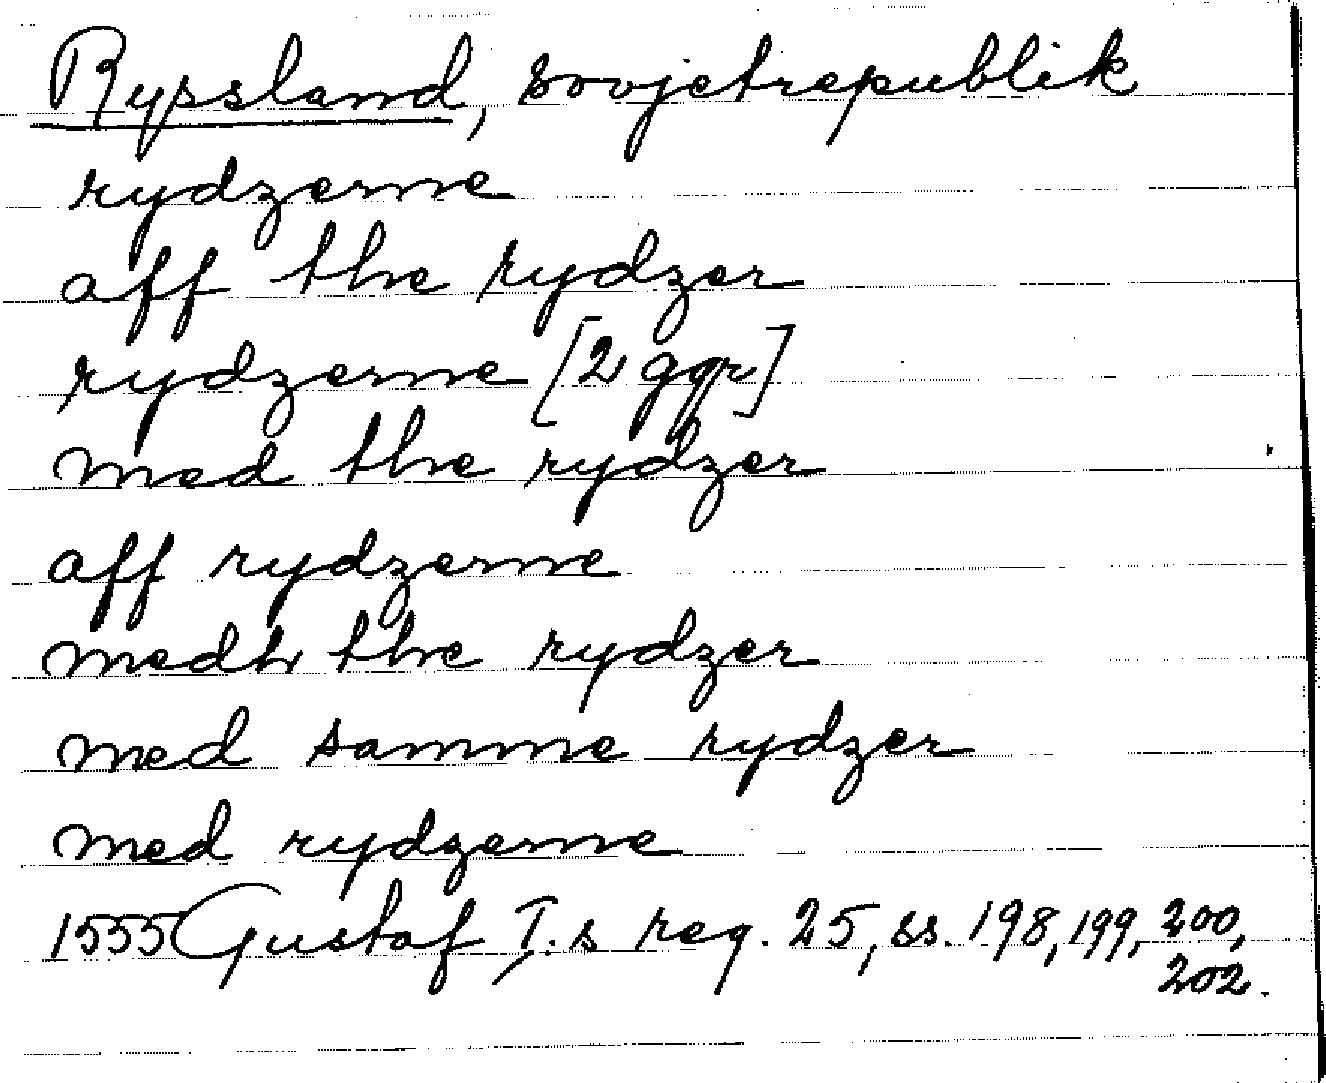 Ryssland, sovjetrepublik
rydzerne
aff the rydzer
rydzerne [2 ggr]
med the rydzer
aff rydzerne
medh the rydzer
med samme rydzer
med rydzerne
1555 Gustaf I.s reg. 25, ss. 198, 199, 200,
202.